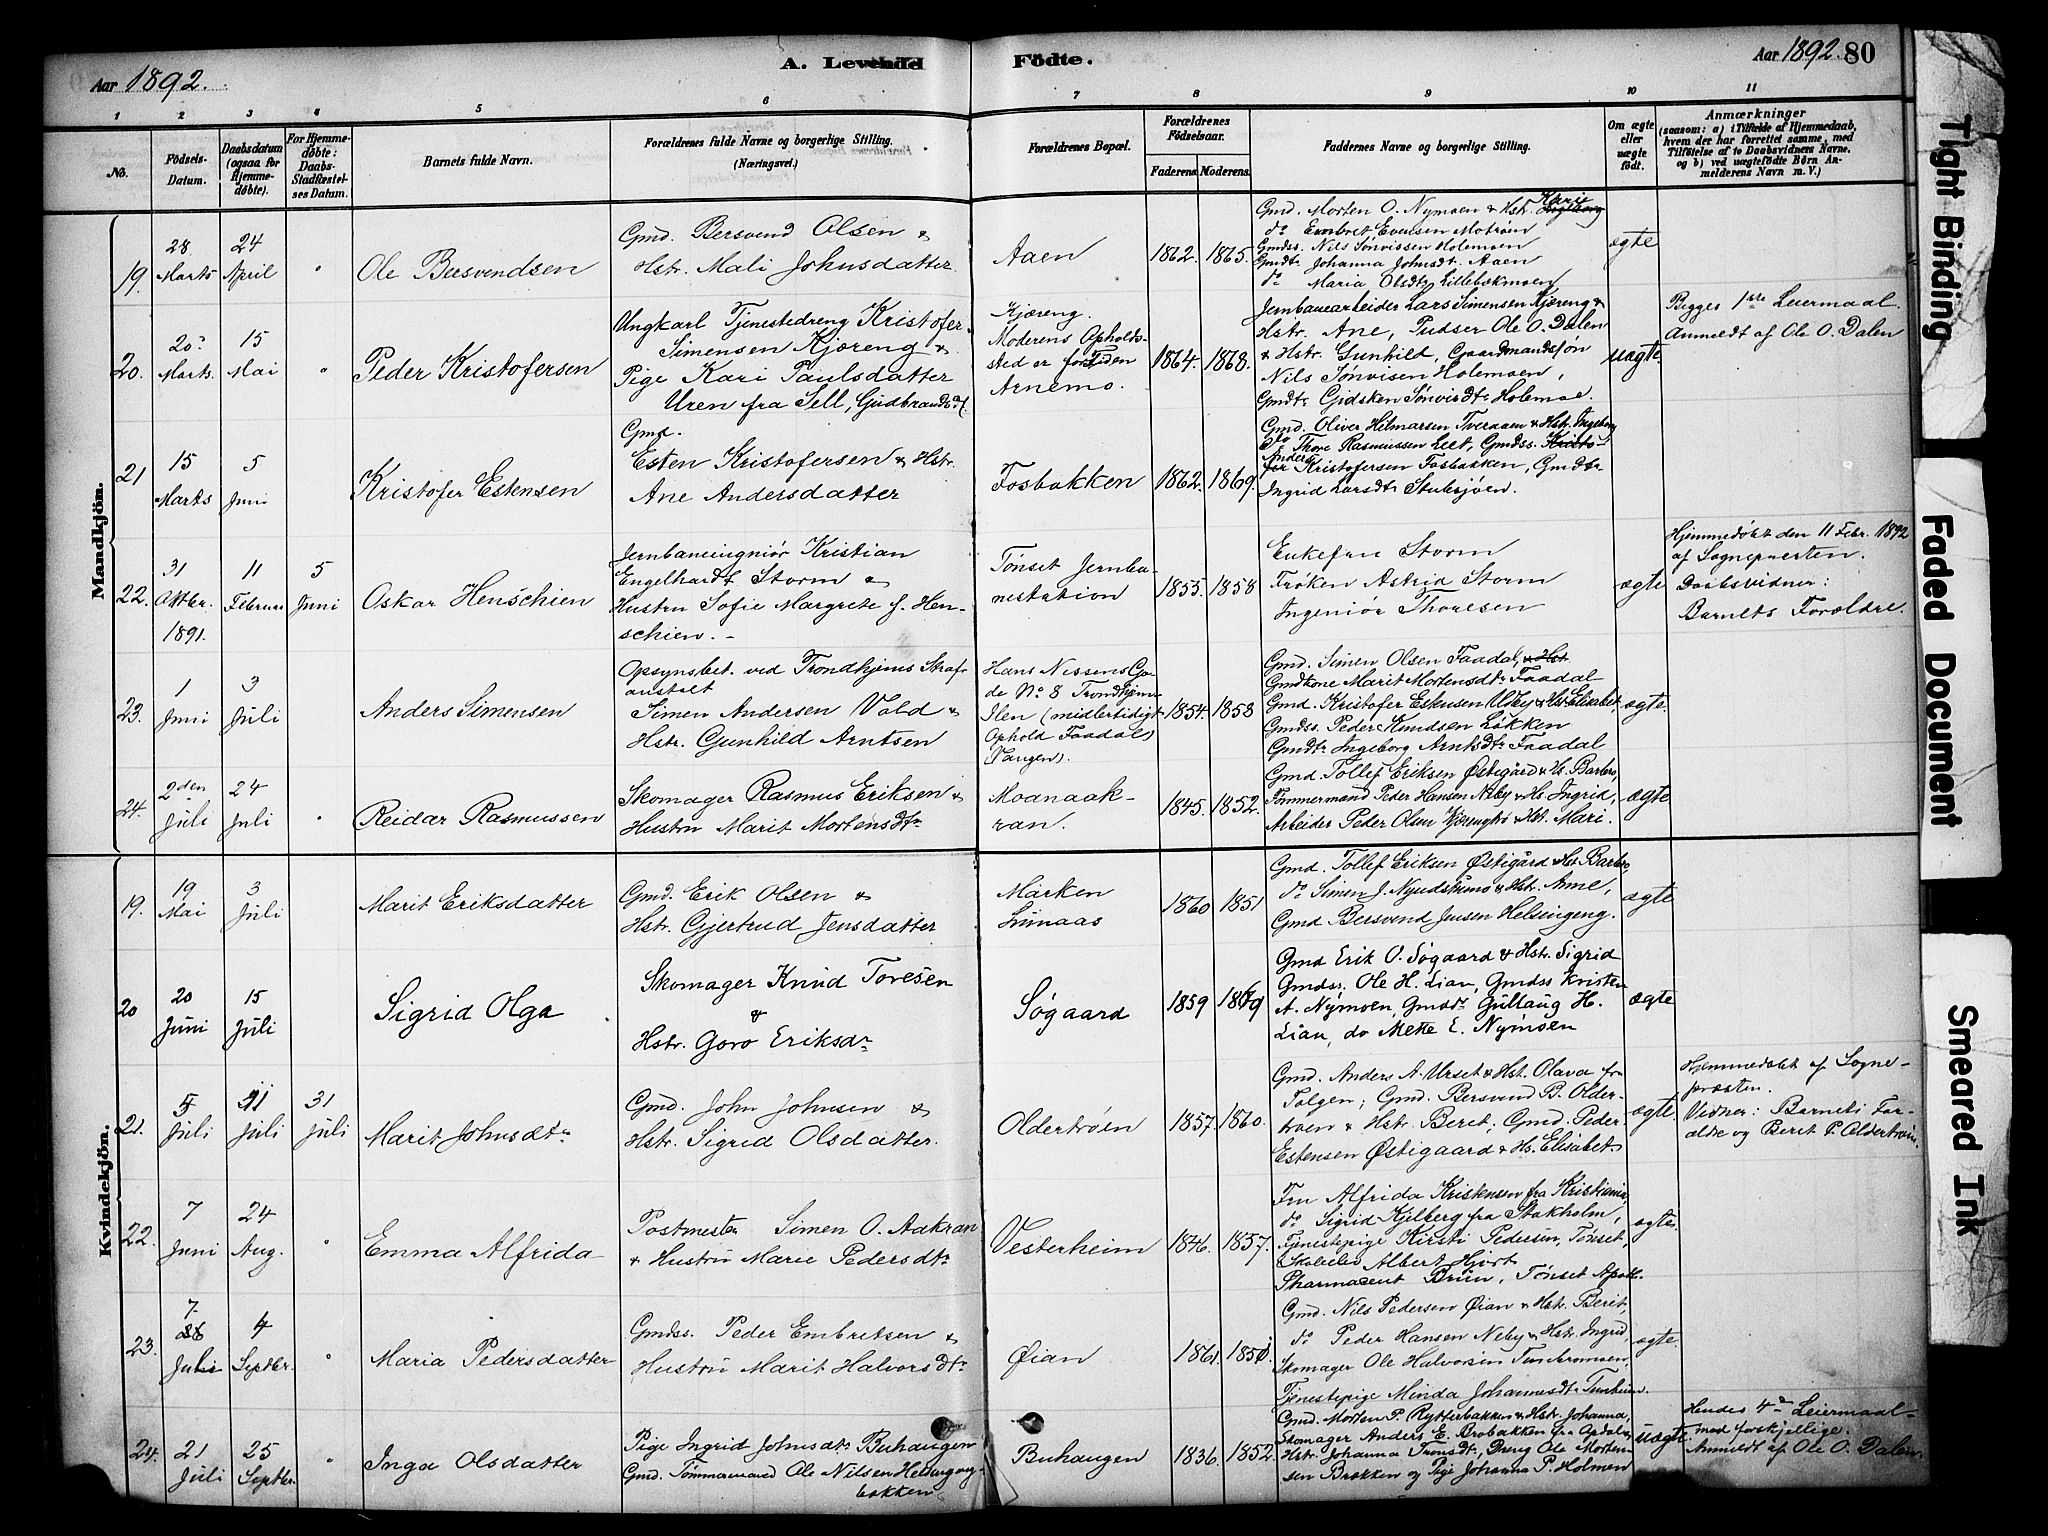 Aar 1892.
A. Levende Födte.
Aar 1892. 80
1 2 3 4 5 6 7 8 9 10 11
No.
Födsels-
Datum.
Daabsdatum
(ogsaa for
Hjemme-
döbte).
For Hjemme-
döbte:
Daabs-
Stadfæstel-
ses Datum.
Barnets fulde Navn.
Forældrenes fulde Navne og borgerlige Stilling.
(Næringsvei.)
Forældrenes Bopæl.
Forældrenes
Födselsaar.
Faderens. Moderens.
Faddernes Navne og borgerlige Stilling.
Om ægte
eller
uægte
födt.
Anmærkninger
(saasom: a) i Tilfælde af Hjemmedaab,
hvem der har forrettet samme, med
Tilföielse af to Daabsvidners Navne,
og b) ved uægtefödte Börn An-
melderens Navn m. V.)
Mandkjön.
19. 28 Marts 24 April " Ole Bersvendsen
Gmd. Bersvend Olsen &
Hstr. Mali Johnsdatter
Aaen 1862. 1865.
Gmd. Morten O. Nymoen & Hstr. Kari
do Embret Evensen Motrøen
Gmdss. Nils Sønvissen Holemoen
Gmdtr Johanna Johnsdt. Aaen
do Maria Olsdtr Lillebakmoen
ægte
20. 20de Marts. 15 Mai " Peder Kristofersen
Ungkarl Tjenestedreng Kristofer
Simensen Kjæreng &
Pige Kari Paulsdatter
Uren fra Sell, Gudbrandsd.
Kjæreng.
Moderens Opholds-
sted er for Tiden
Arnemo.
1864. 1868.
Jernbanearbeider Lars Simensen Kjæreng &
Hstr. Ane, Pudser Ole O. Dalen
& Hstr. Gunhild, Gaardmandssøn
Nils Sønvisen Holemoen,
Gmdtr Gidsken Sønvisdtr Holemoe.
uægte.
Begges 1ste Leiermaal
Anmeldt af Ole O. Dalen
21 15 Marts 5 Juni Kristofer Estensen
Gmd.
Esten Kristofersen & Hstr.
Ane Andersdatter
Fosbakken 1862. 1869.
Gmd. Oliver Hilmarsen Tveraaen & Hstr. Ingeborg
do Thore Rasmussen Leet, Gmdss. Kristo-
Anders
fer Kristofersen Fosbakken, Gmdtr
Ingrid Larsdtr Stubsjøen.
22. 31 Oktbr. 1891. 11 Februar 5 Juni Oskar Henschien
Jernbaneingniør Kristian
Engelhardt Storm &
Hustru Sofie Margrete f. Hen-
schien.
Tønset Jernba-
nestation
1855. 1858
Enkefru Storm
Frøken Astrid Storm
Ingeniør Thoresen
ægte
Hjemmedøbt den 11 Febr. 1892
af Sognepresten.
Daabsvidner:
Barnets Forældre.
23. 1 Juni 3 Juli Anders Simensen
Opsynsbet. ved Trondhjems Straf-
anstalt
Simen Andersen Vold &
Hstr. Gunhild Arntsen
Hans Nissens Ga-
de No 8 Trondhjem
Ilen (midlertidigt
Ophold Faadal
Vangen).
1854. 1858
Gmd. Simen Olsen Faadal, & Hst
Gmdkone Marit Mortensdtr Faadal
Gmd. Kristofer Estensen Urby & Hst. Elisabet
Gmdss. Peder Knudsen Løkken
Gmdtr Ingeborg Arntsdtr Faadal
ægte.
24. 2den Juli 24 Juli " Reidar Rasmussen
Skomager Rasmus Eriksen &
Hustru Marit Mortensdtr
Moanaak-
ran.
1845. 1852.
Gmd. Tollef Eriksen Østigård & Hs. Barbro,
Tømmermand Peder Hansen Neby & Hs. Ingrid,
Arbeider Peder Olsen Kjærengmo & Hst. Mari.
ægte
Kvindekjön.
19. 19 Mai 3 Juli Marit Eriksdatter
Gmd. Erik Olsen &
Hstr. Gjertrud Jensdatter
Marken
Lunaas
1860 1851
Gmd. Tollef Eriksen Østigård & Hs. Barbro,
do Simen J. Nyudstumo & Hstr. Anne,
Gmd Bersvend Jensen Helsingeng.
ægte
20 20 Juni 15 Juli Sigrid Olga
Skomager Knud Toresen
&
Hstr. Goro Eriksdr
Søgaard 1859 1869
Gmd Erik O. Søgaard & Hstr. Sigrid
Gmdss. Ole H. Lian, Gmdss Kristen
A. Nymoen, Gmdr. Gullaug H.
Lian, do Mette E. Nymoen
ægte
21. 5 Juli 11 Juli 31 Juli Marit Johnsdtr
Gmd. John Johnsen &
Hstr. Sigrid Olsdatter.
Oldertrøen 1857. 1860.
Gmd. Anders A. Urset & Hst. Olava fra
Tolgen; Gmd. Bersvend B. Older-
trøen & Hstr. Beret; Gmd. Peder
Estensen Østigaard & Hs. Elisabet
ægte.
Hjemmedøbt af Sogne-
præsten.
Vidner: Barnets For-
ældre og Berit P. Oldertrøen.
22. 7 Juni 24 Aug. " Emma Alfrida
Postmester Simen O. Aakran
& Hustru Marie Pedersdtr
Vesterheim 1846. 1857.
Fru Alfrida Kristensen fra Kristiania,
do Sigrid Kjelberg fra Stokholm,
Tjenestepige Kirsti Pedersen, Tønset,
Skoleelev Albert Hjort
Pharmaceut Bruun, Tønset Apoth.
ægte.
23. 7 Juli 4 Septbr. " Maria Pedersdatter
Gmdss. Peder Embretsen &
Hustru Marit Halvorsdtr
Øian 1861. 1850.
Gmd. Nils Pedersen Øian & Hstr. Berit,
do Peder Hansen Neby & Hstr. Ingrid,
Skomager Ole Halvorsen Tunbromoen,
Tjenestepige Minda Johannesdtr Tunheim.
ægte
24. 21 Juli 25 Septbr. " Inga Olsdatter
Pige Ingrid Johnsdtr Buhaugen
Gmd. Tømmermand Ole Nilsen Helsingeng-
bakken
Buhaugen 1836. 1852.
Gmd. Morten P. Rytterbakken & Hstr. Johanna,
Skomager Anders E. Brobakken fra Opdal &
Hstr Johanna Tronsdtr, Dreng Ole Morten-
sen Brækken og Pige Johanna P. Holmen
uægte.
Hendes 4de Leiermaal
med forskjellige.
Anmeldt af Ole O. Dalen.
Tight Binding
Faded Document
Smeared Ink